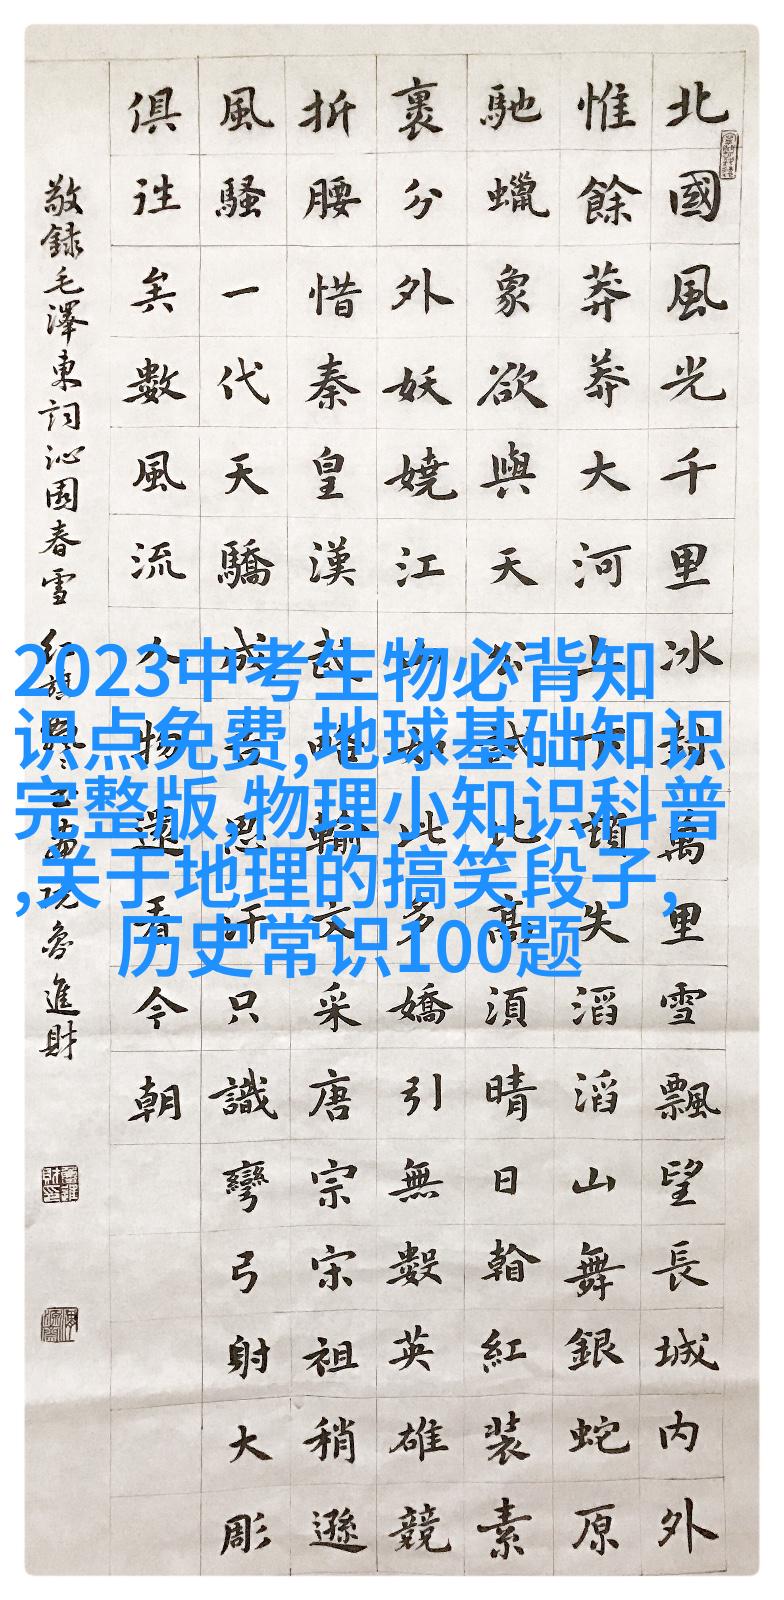 北國風光千里冰封萬里雪飄望長城内外
惟餘莽莽大河上下頓失滔滔山舞銀蛇原
馳蠟象欲與天公試比高須晴日看紅裝素
裹分外妖嬈江山如此多嬌引無數英雄競
折腰惜秦皇漢武略輸文采唐宗宋祖稍遜
風騷一代天驕成吉思汗只識彎弓射大彫
俱往矣數風流人物還看今朝
敬録毛澤東詞沁園春雪 紅旗書院魯進財
2023中考生物必背知
识点免费,地球基础知识
完整版,物理小知识科普
,关于地理的搞笑段子,
历史常识100题